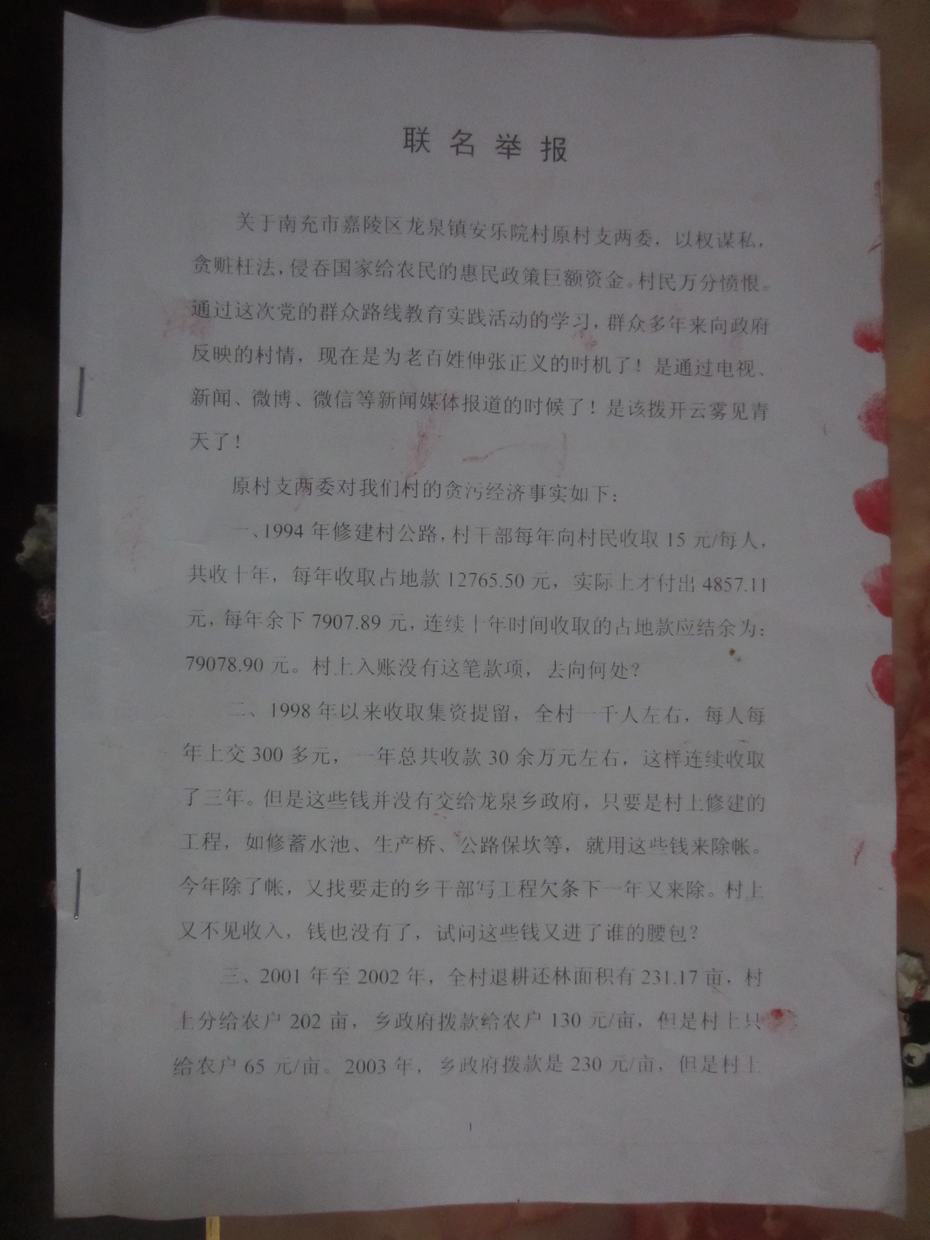 联名举报
关于南充市嘉陵区龙泉镇安乐院村原村支两委，以权谋私，
贪赃枉法，侵吞国家给农民的惠民政策巨额资金。村民万分愤恨。
通过这次党的群众路线教育实践活动的学习，群众多年来向政府
反映的村情，现在是为老百姓伸张正义的时机了！是通过电视、
新闻、微博、微信等新闻媒体报道的时候了！是该拨开云雾见青
天了！
原村支两委对我们村的贪污经济事实如下：
一、1994年修建村公路，村干部每年向村民收取15元/每人，
共收十年，每年收取占地款12765.50元，实际上才付出4857.11
元，每年余下7907.89元，连续十年时间收取的占地款应结余为：
79078.90元。村上入账没有这笔款项，去向何处？
二、1998年以来收取集资提留，全村一千人左右，每人每
年上交300多元，一年总共收款30余万元左右，这样连续收取
了三年。但是这些钱并没有交给龙泉乡政府，只要是村上修建的
工程，如修蓄水池、生产桥、公路保坎等，就用这些钱来除帐。
今年除了帐，又找要走的乡干部写工程欠条下一年又来除。村上
又不见收入，钱也没有了，试问这些钱又进了谁的腰包？
三、2001年至2002年，全村退耕还林面积有231.17亩，村
上分给农户202亩，乡政府拨款给农户130元/亩，但是村上只
给农户65元/亩。2003年，乡政府拨款是230元/亩，但是村上
1